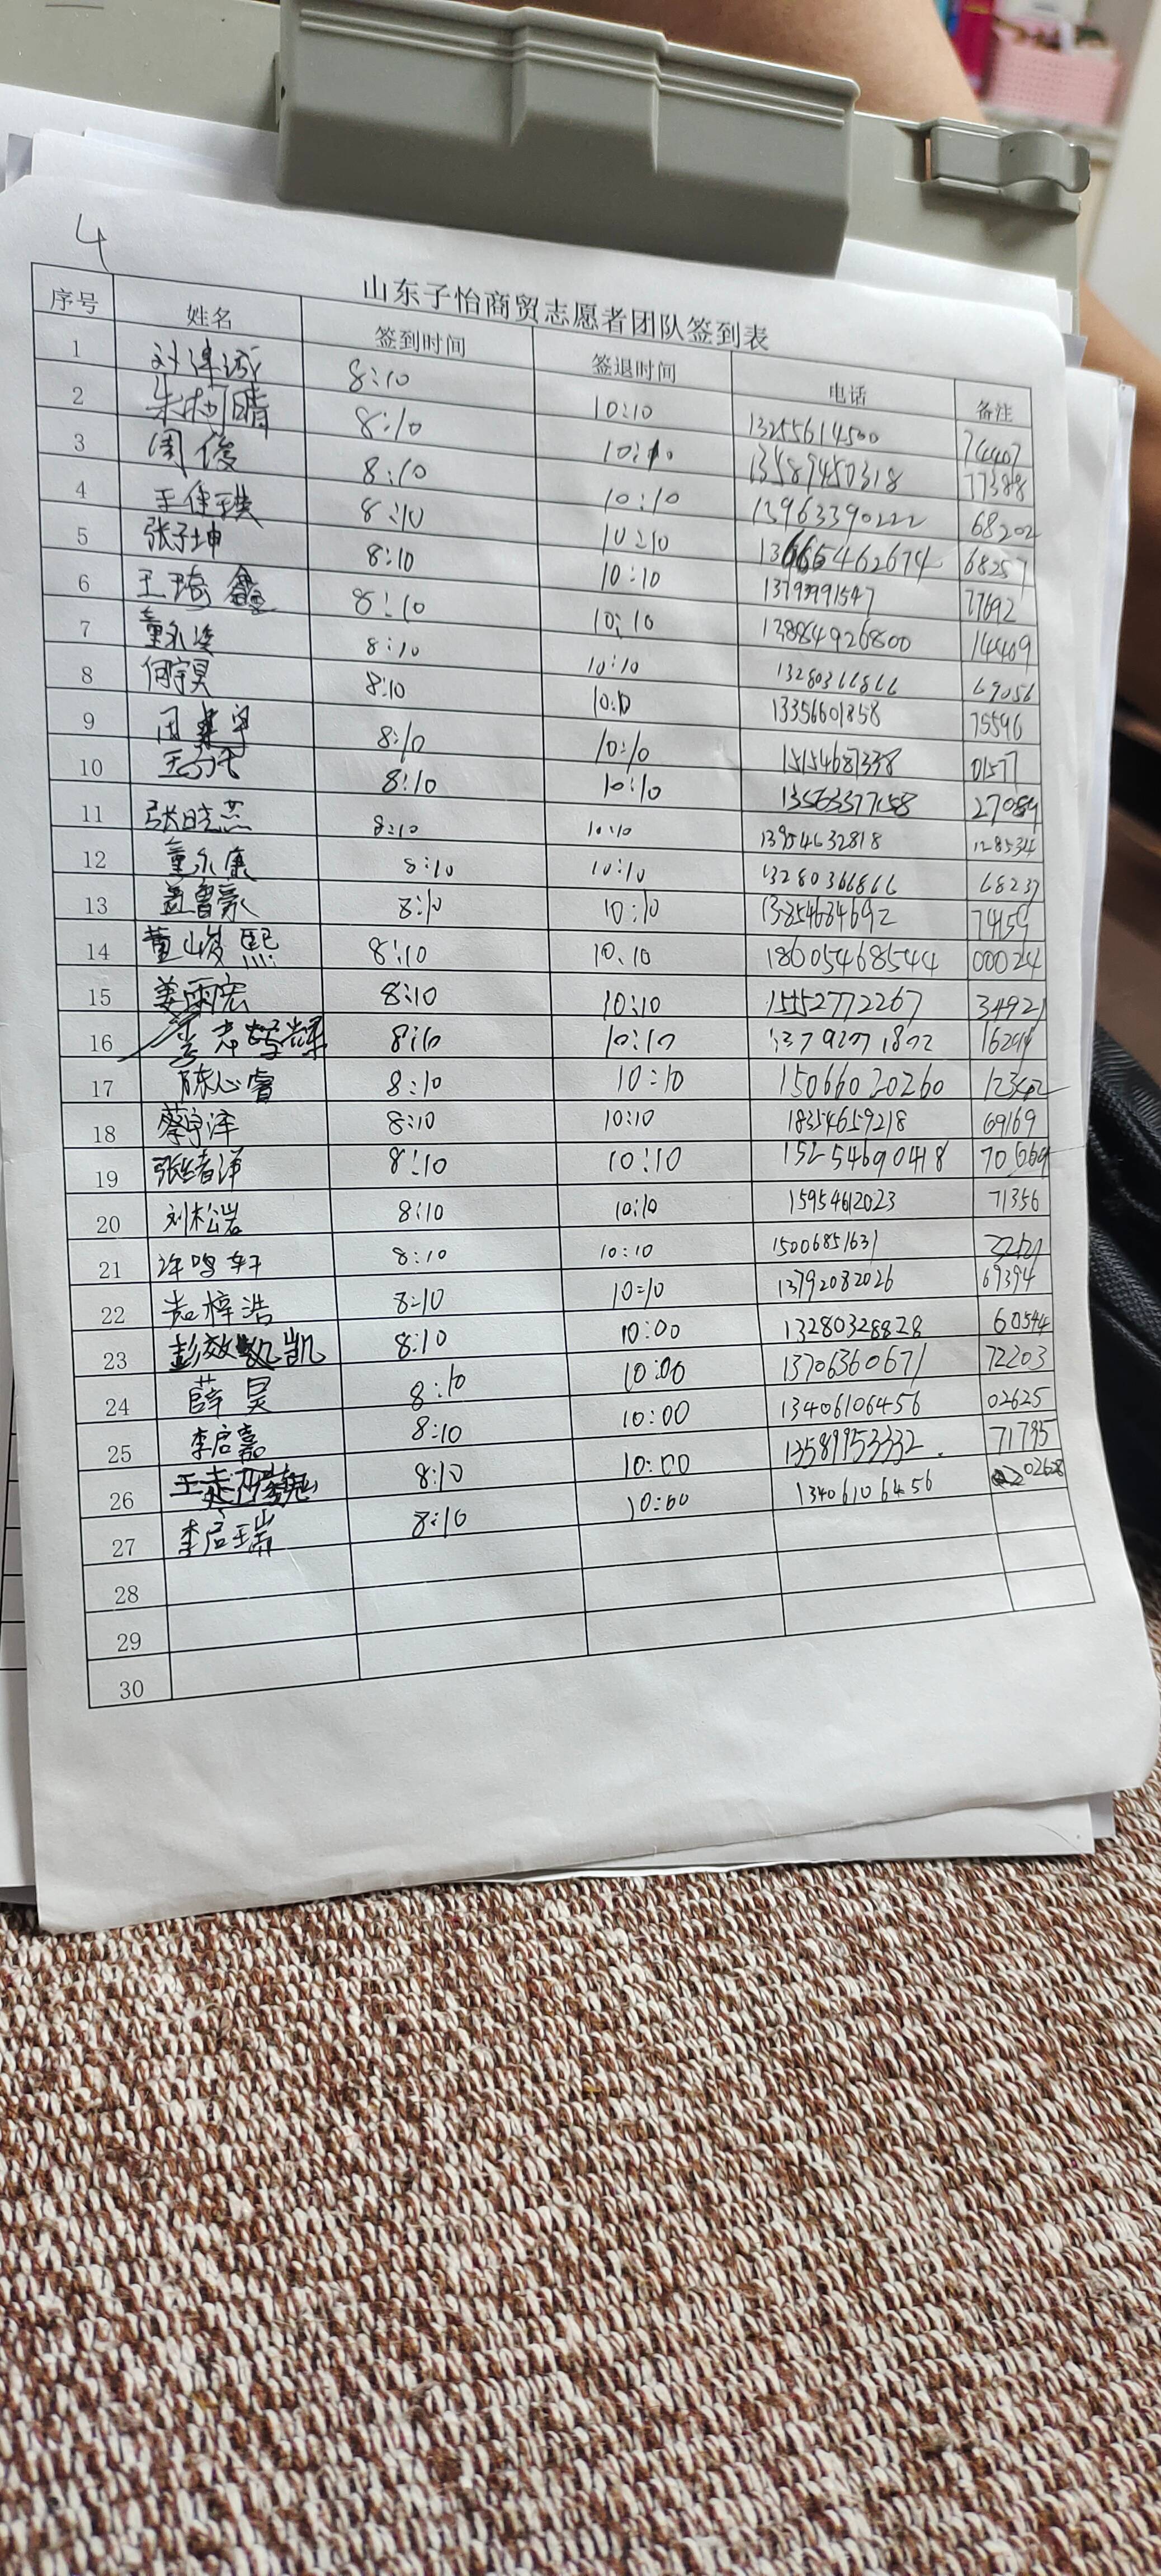 4
山东子怡商贸志愿者团队签到表
序号 姓名 签到时间 签退时间 电话 备注
1 8:10 10:10 13255614500 74407
2 朱柯晴 8:10 10:10 13589450318 77388
3 周俊 8:10 10:10 13963390222 68202
4 8:10 10:10 13665462674 68257
5 张子坤 8:10 10:10 13793991547 77692
6 王琦鑫 8:10 10:10 13884926800 14409
7 董永 8:10 10:10 13280366866 69056
8 何宇昊 8:10 10:10 13356601858 75596
9 周 宇 8:10 10:10 15154687338 01577
10 8:10 10:10 13563377158 27089
11 张晓燕 8:10 10:10 13954632818 128534
12 董永康 8:10 10:10 13280366866 68237
13 孟鲁豪 8:10 10:10 13854684692 74159
14 董峻熙 8:10 10:10 18605468544 00024
15 姜雨宏 8:10 10:10 15552772267 34921
16 李志 8:10 10:10 13792071802 16294
17 陈心睿 8:10 10:10 15066020260 12342
18 蔡宇泽 8:10 10:10 18354659218 69169
19 张绪洋 8:10 10:10 15254690418 70669
20 刘松岩 8:10 10:10 15954612023 71356
21 许鸣轩 8:10 10:10 15006851631
22 梓浩 8:10 10:10 13792082026 69394
23 彭 凯 8:10 10:00 13280328828 60544
24 薛昊 8:10 10:00 13706360671 72203
25 李启嘉 8:10 10:00 13406106456 02625
26 王 8:10 10:00 13589953332 71795
27 李启瑞 8:10 10:00 13406106456 02628
28
29
30